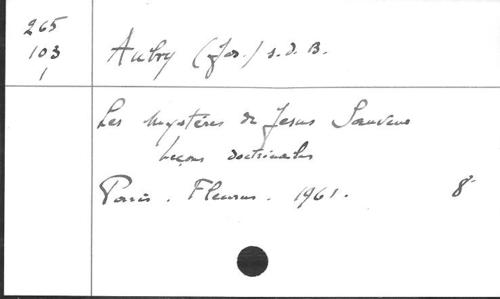 265
103
1
Aubry (Jos.) s.d.B.
Les Mystères de Jesus Sauveur
Leçons doctrinales
Paris. Fleurus. 1961. 8°